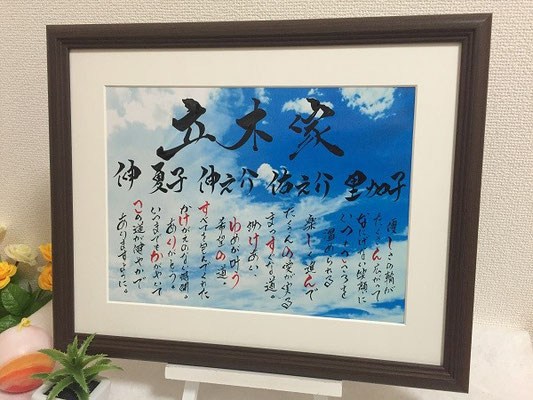 立木家
伸 夏子 伸之介 佑之介 里加子
優しさの輪が
たくさん広がって
なにげない笑顔に
いつもこころを
温められる
楽しく進んで
たくさんの愛が実る
まっすぐな道。
助けあい
ゆめが叶う
希望の道。
すべてを与えてくれた
かけがえのない時間。
ありがとう。
いつまでもかがやいて
この道が健やかで
ありますように。